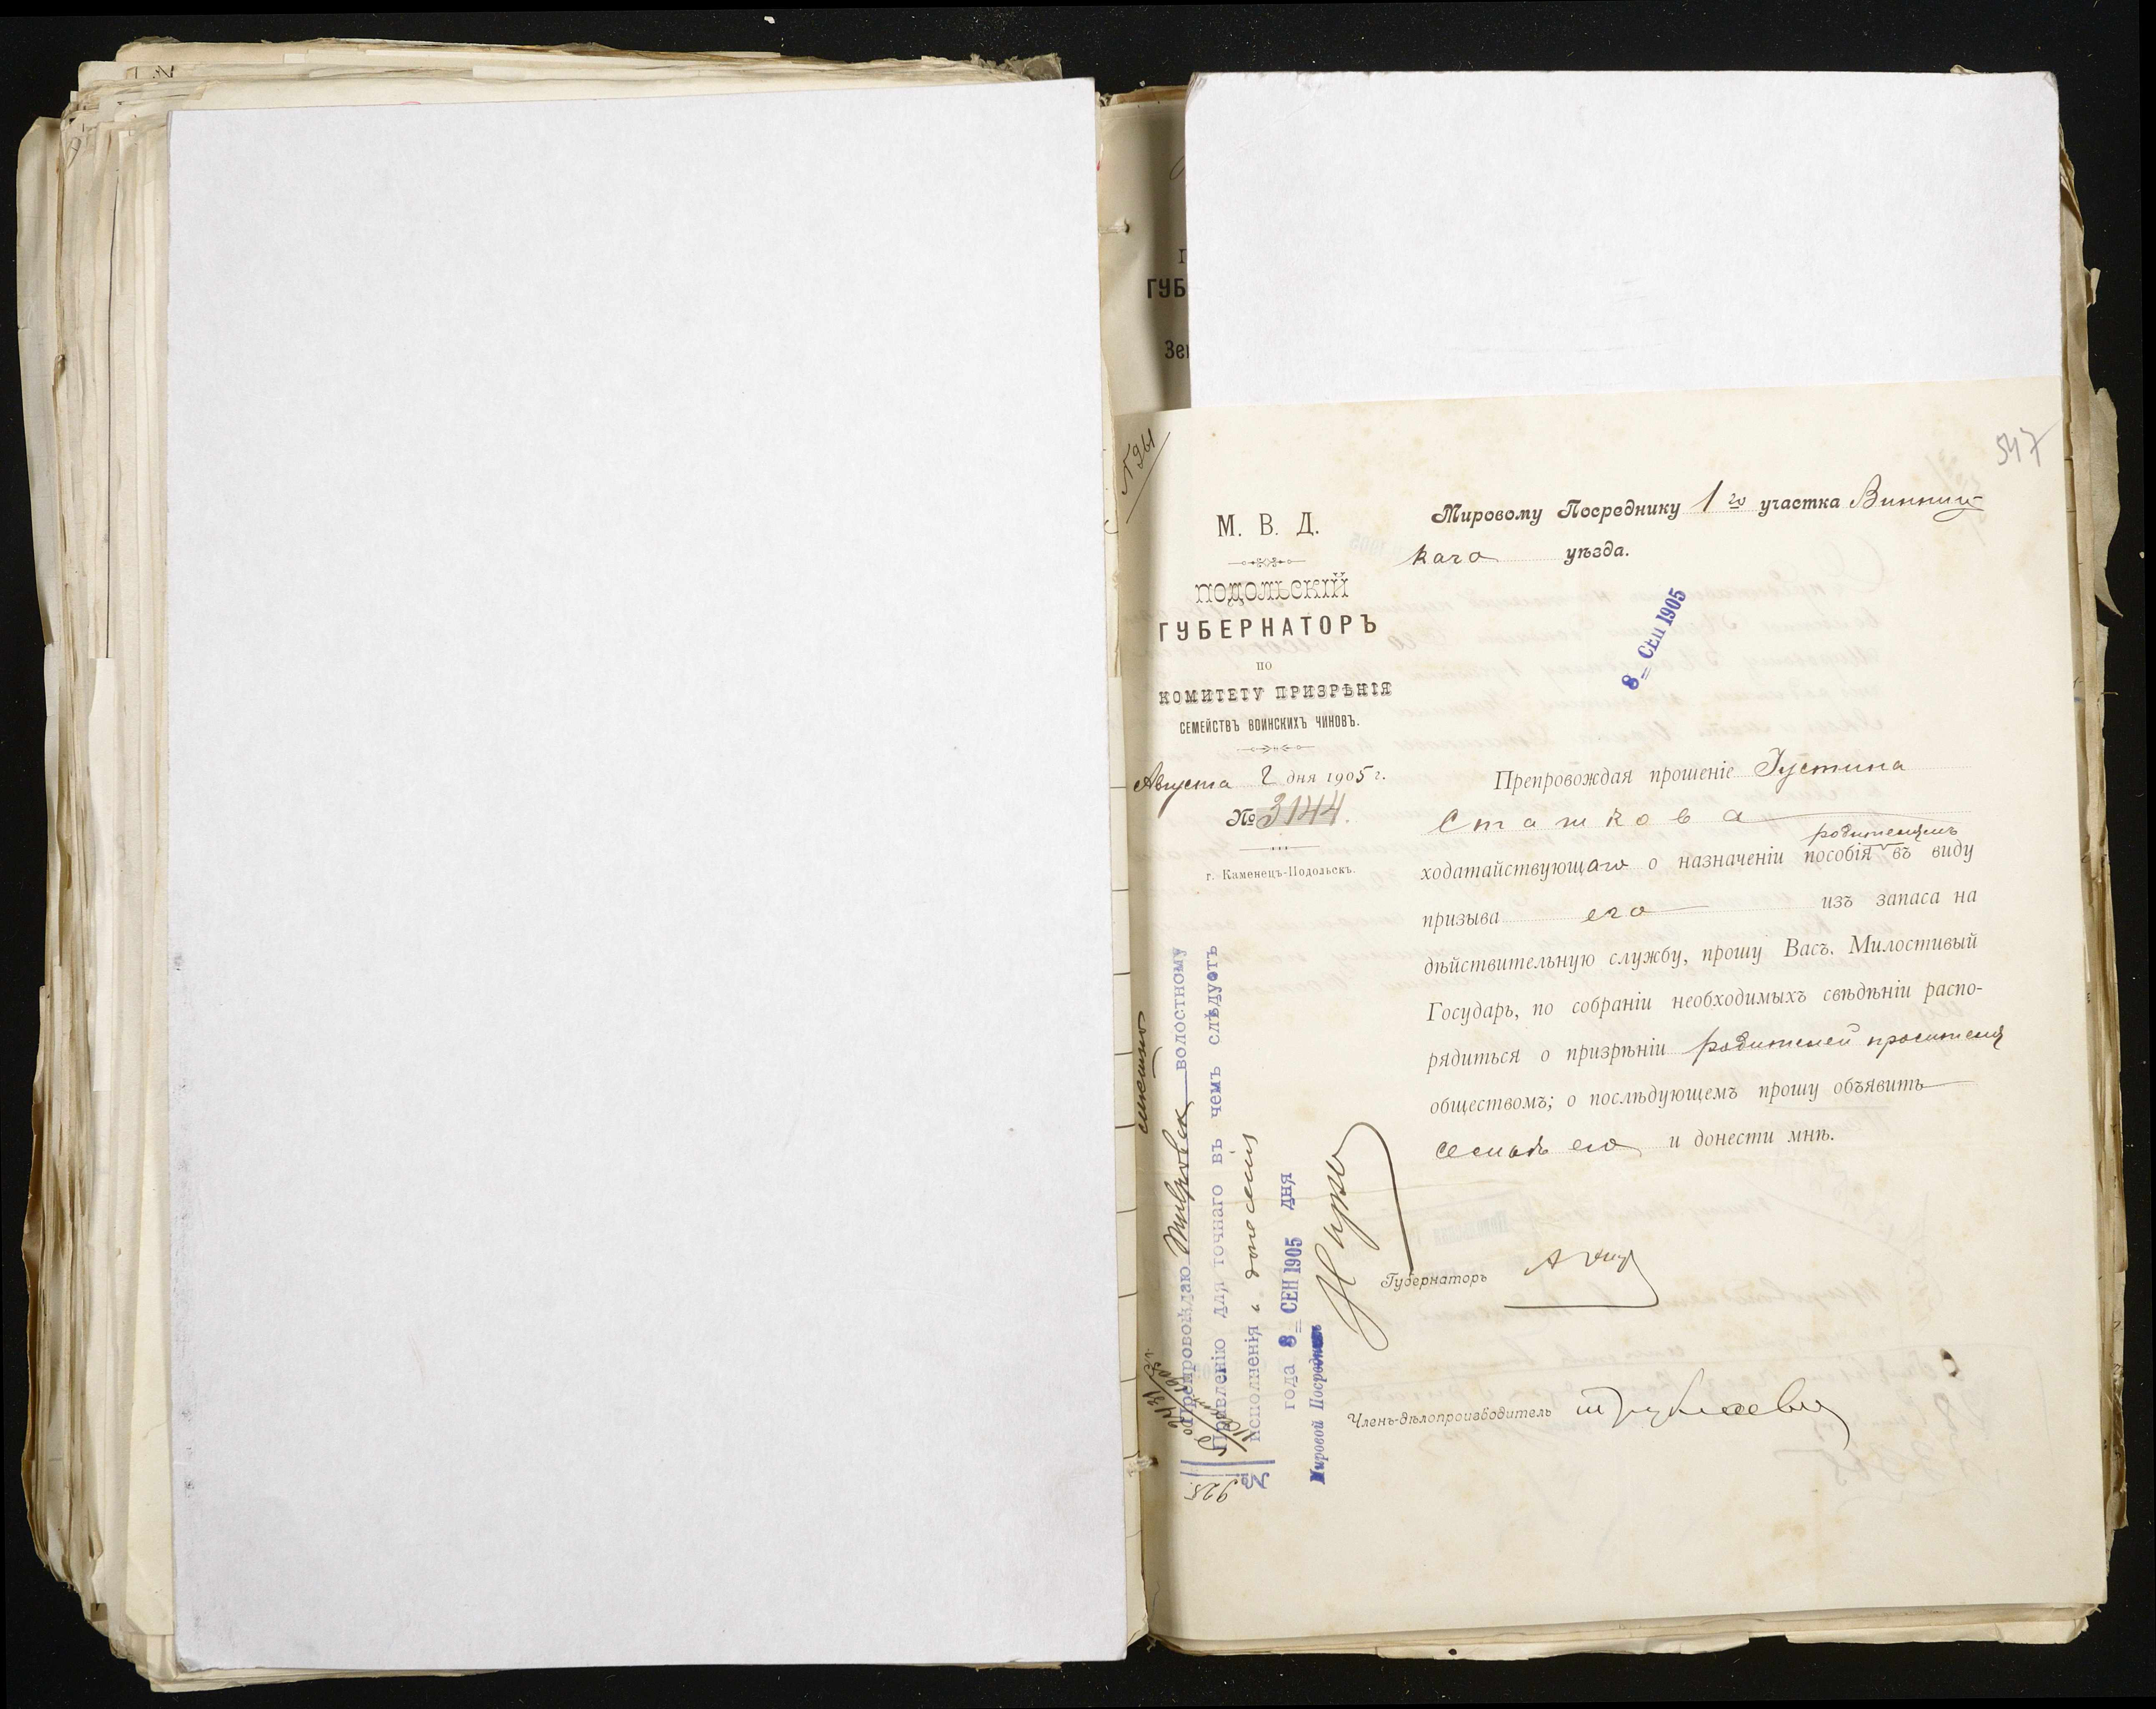 547
N 961
М. В. Д.
ПОДОЛЬСКІЙ
ГУБЕРНАТОРЪ
ПО
КОМИТЕТУ ПРИЗРѢНІЯ
СЕМЕЙСТВЪ ВОИНСКИХЪ ЧИНОВЪ.
Августа 2 дня 1905 г.
№ 3144.
г. Каменецъ-Подольскъ.
Мировому Посреднику 1го участка Винниц
каго уѣзда.
8 СЕН 1905
Препровождая прошеніе Іустина
Сташкова
родителямъ
ходатайствующаго о назначеніи пособія въ виду
призыва его изъ запаса на
дѣйствительную службу, прошу Васъ, Милостивый
Государь, по собраніи необходимыхъ свѣдѣніи распо-
рядиться о призрѣніи родителей просителя
обществомъ; о послѣдующемъ прошу объявить
семьѣ его и донести мнѣ.
Губернаторъ
Членъ-дѣлопроизводитель
Препровождаю Тывровск волостному
Правленію для точнаго въ чемъ слѣдуетъ
исполненія и донесенія
года 8 СЕН 1905 дня
Мировой Посредникъ
№
928
ГУБ
Зе